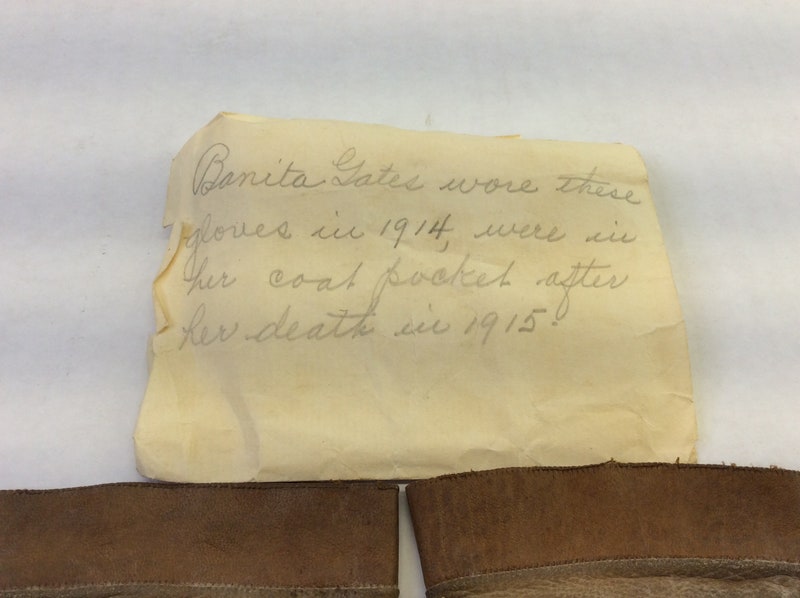 Banita Gates wore these
gloves in 1914, were in
her coat pocket after
her death in 1915.